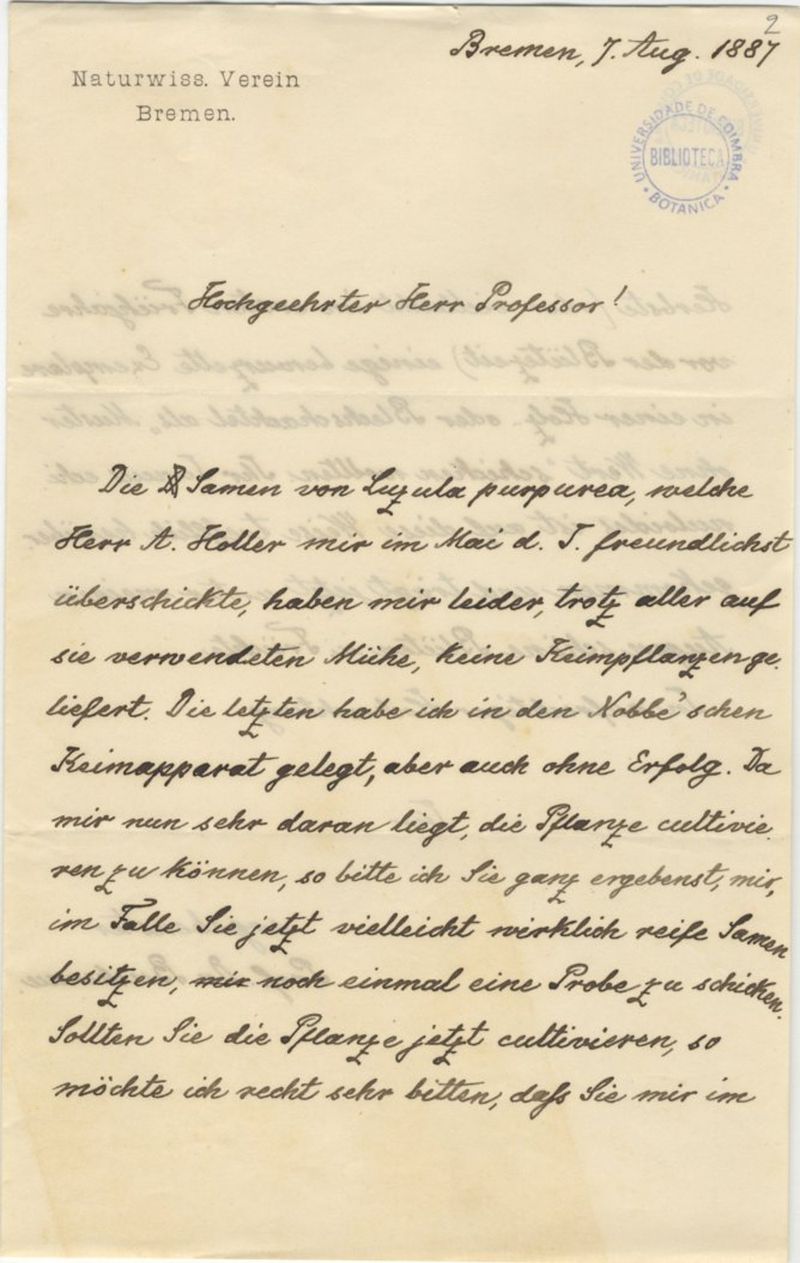 2
Bremen, 7. Aug. 1887
Naturwiss. Verein
Bremen.
UNIVERSIDADE DE COIMBRA
BIBLIOTECA
BOTANICA
Hochgeehrter Herr Professor!
Die Samen von Luzula purpurea, welche
Herr A. Moller mir im Mai d. J. freundlichst
überschickte, haben mir leider, trotz aller auf
sie verwendeten Mühe, keine Keimpflanzen ge-
liefert. Die letzten habe ich in den Nobbe'schen
Keimapparat gelegt, aber auch ohne Erfolg. Da
mir nun sehr daran liegt, die Pflanze cultivie-
ren zu können, so bitte ich Sie ganz ergebenst, mir,
im Falle Sie jetzt vielleicht wirklich reife Samen
besitzen, mir noch einmal eine Probe zu schicken.
Sollten Sie die Pflanze jetzt cultivieren, so
möchte ich recht sehr bitten, daß Sie mir im